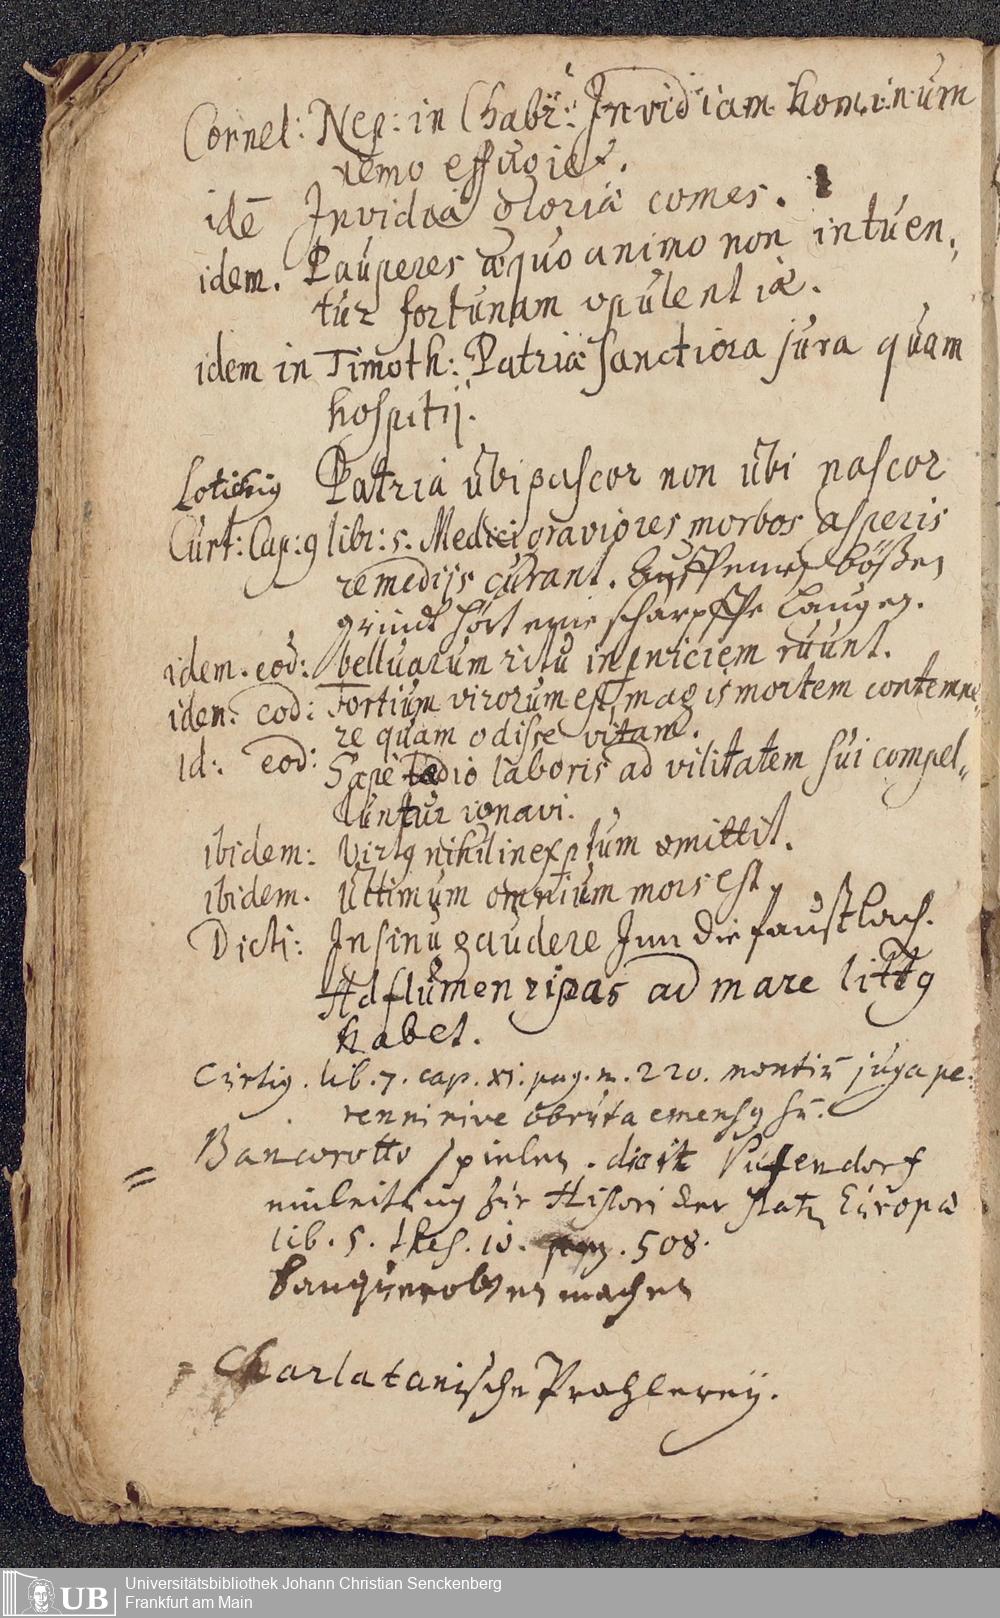 Cornel: Nep: in Chabr: Invidiam hominum
nemo effugiet.
idē Invidia gloriæ comes.
idem. Pauperes æquo animo non intuen,
tur fortunam opulentiæ.
idem in Timoth: Patriæ sanctiora jura quam
hospitij.
Lotichig Patria ubi pascor non ubi nascor
Curt: Cap: 9 libr: 5. Medici graviores morbos asperis
remedijs curant. Auff einen bößen
grindt hört eine scharpffe Laugen.
idem. eod: belluarum ritu in pniciem ruunt.
idem: eod: Fortium virorum est magis mortem contemne,
re quam odisse vitam.
Id: eod: Sæpè tædio laboris ad vilitatem sui compel,,
luntur ignavi.
ibidem: Virtg nihil inexptum omittit.
ibidem. Ultimum omnium mors est
Dicti: In sinu gaudere Inn die faust lach.
Ad flumen ripas ad mare littg
habet.
Curtig. lib. 7. cap. XI. pag. m. 220. montiū juga pe:
renni nive obruta emensg sū.
Bancorotto spielen. dicit Pufendorf
einleittung zur Histori der staten Europæ
lib. 5. thes. 10. pag. 508.
banquerotten machen
Charlatanische Prahlereÿ.
Universitätsbibliothek Johann Christian Senckenberg
Frankfurt am Main
UB